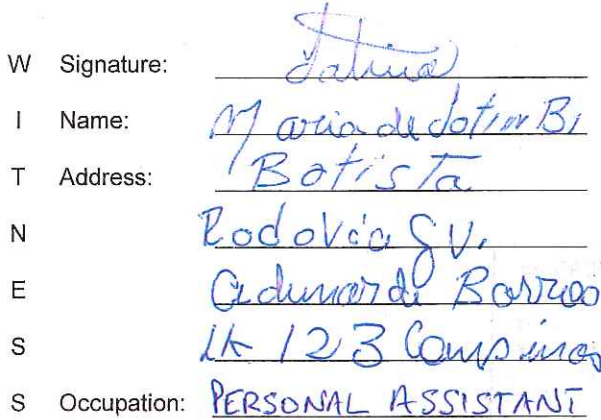 W Signature: Fatima
I Name: Maria de Fatima B,
T Address: Batista
N Rodovia GV,
E Ademar de Barros
S Lk 123 Campinas
S Occupation: PERSONAL ASSISTANT